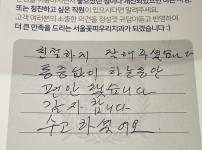 또는 칭찬하고 싶은 직원이 있으시다면 알려주세요.
고객 여러분의 소중한 의견을 정성껏 귀담아듣고 반영하여
더 큰 만족을 드리는 서울꽃피우리치과가 되겠습니다 :)
친절하지
통증없이
편안 했습니다
감사 합니다
수고 하셨어요.